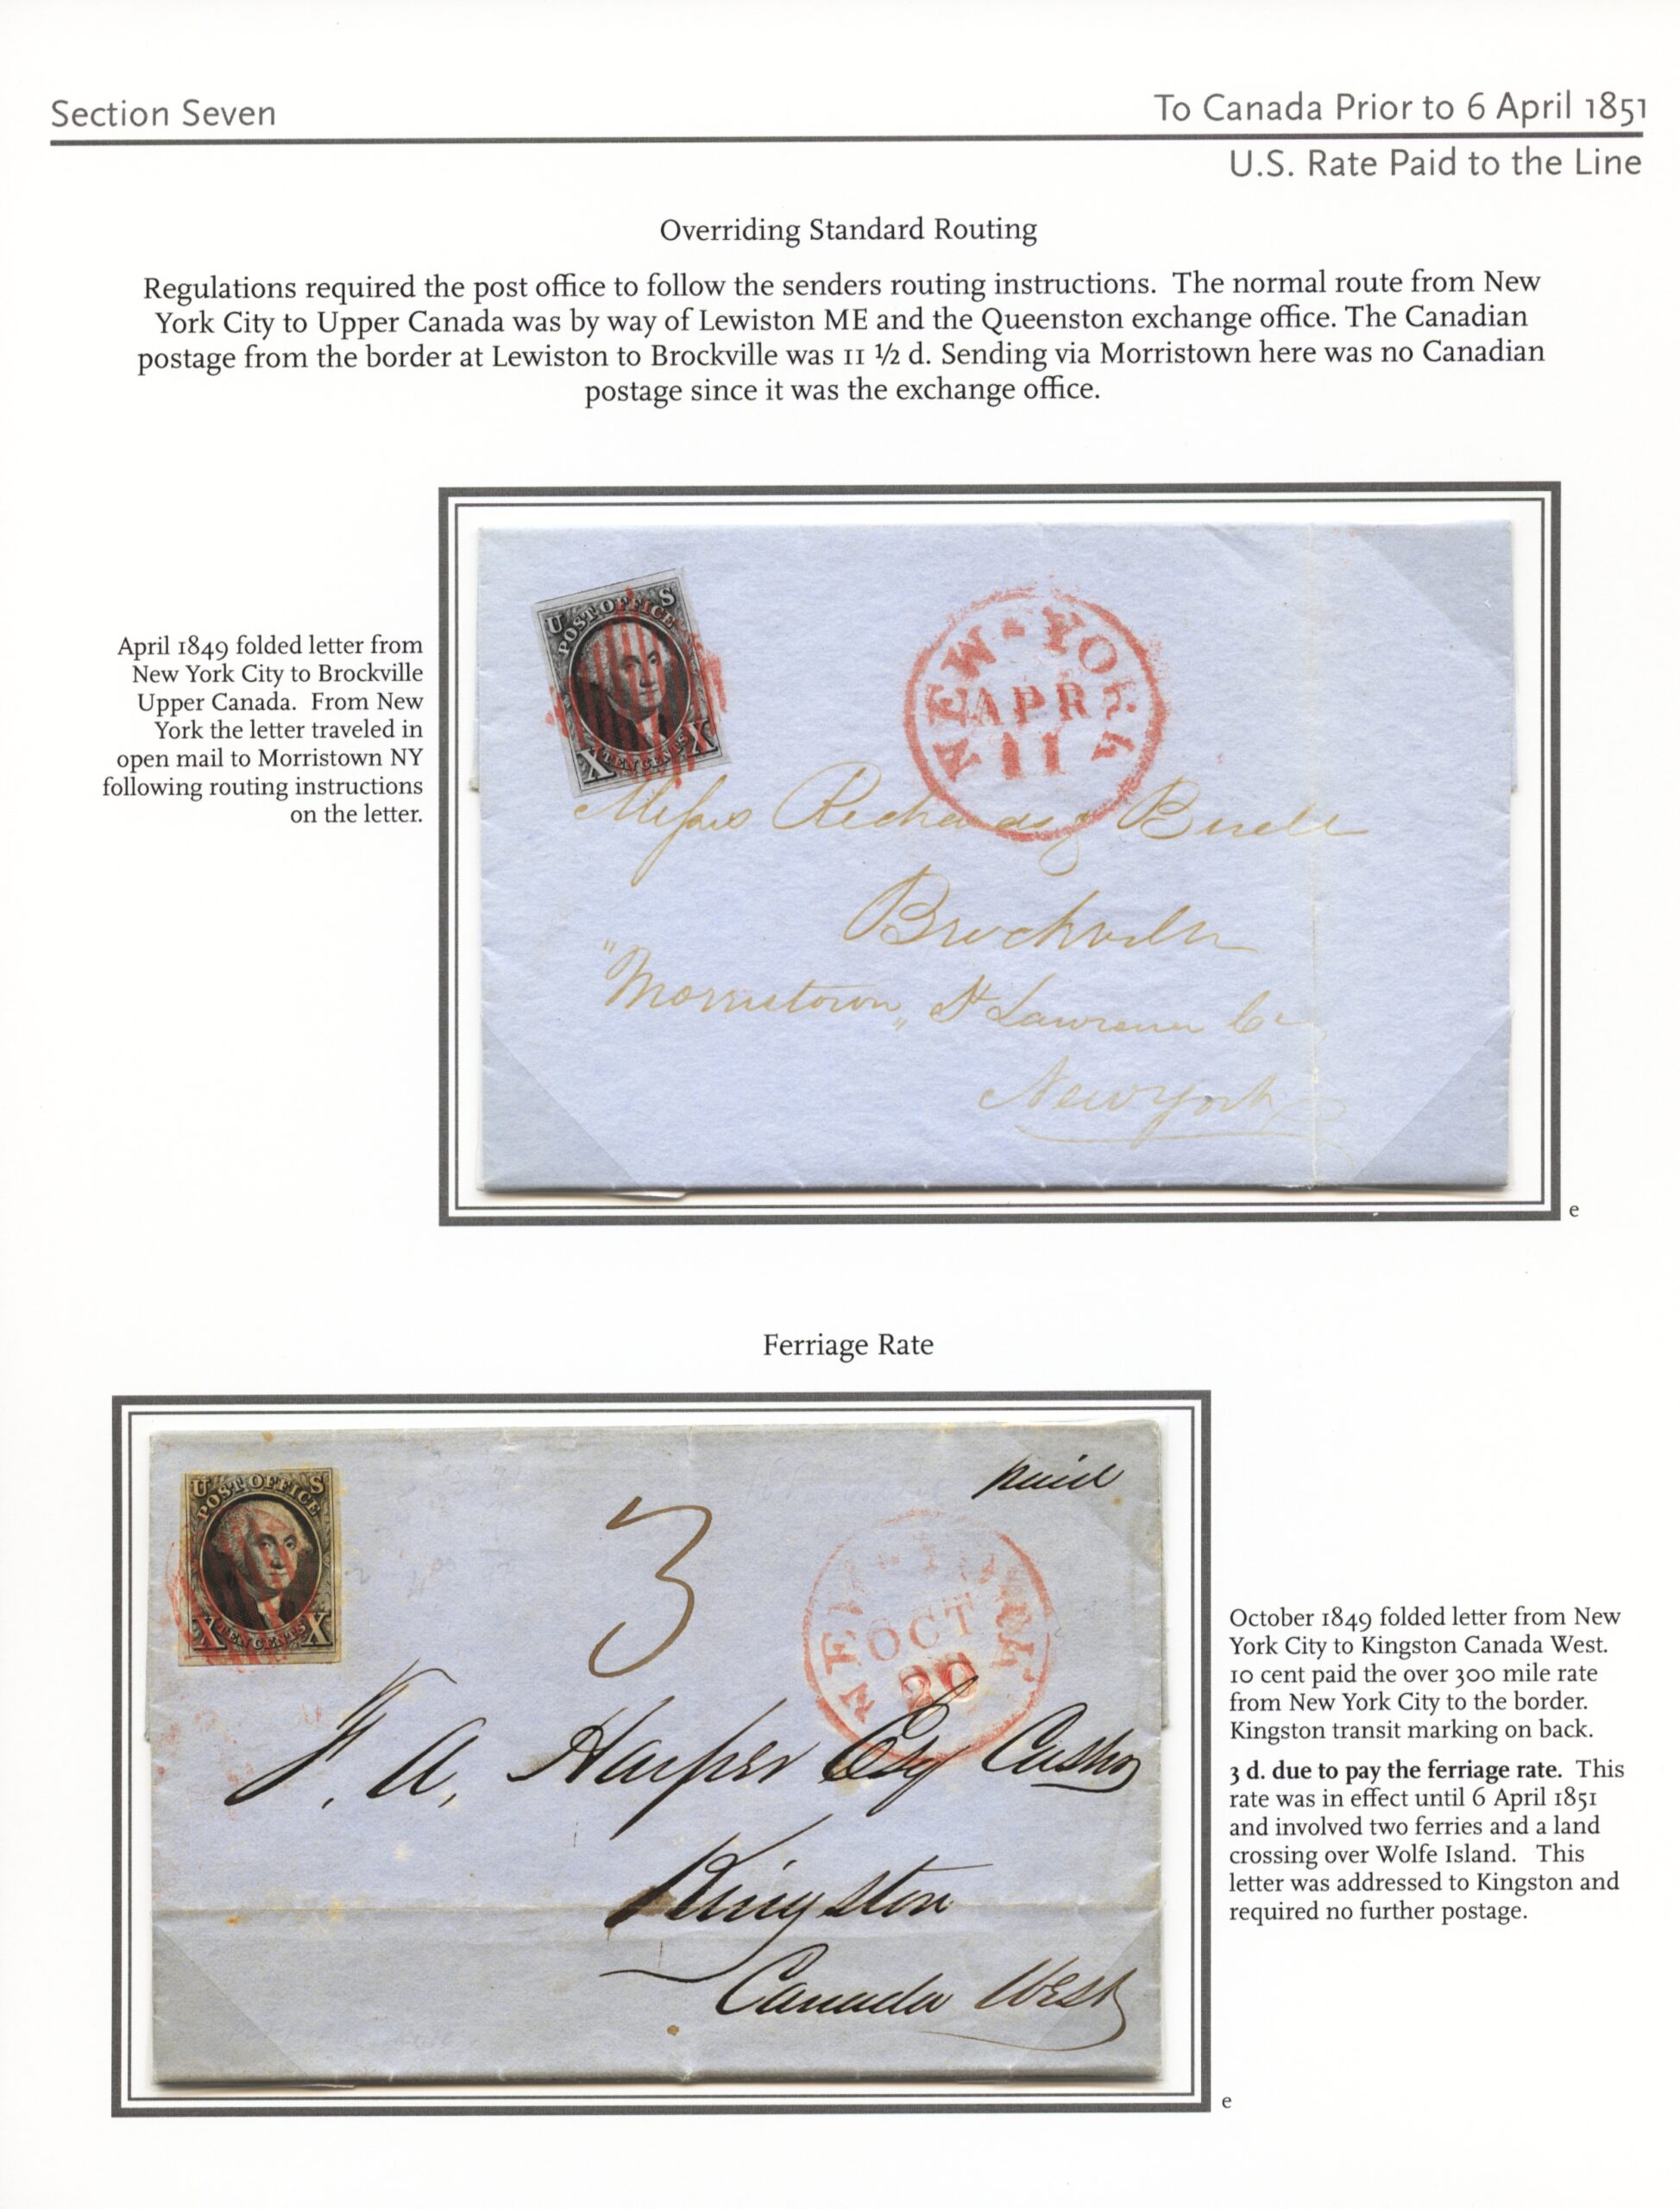 Section Seven
To Canada Prior to 6 April 1851
U.S. Rate Paid to the Line
Overriding Standard Routing
Regulations required the post office to follow the senders routing instructions. The normal route from New
York City to Upper Canada was by way of Lewiston ME and the Queenston exchange office. The Canadian
postage from the border at Lewiston to Brockville was 11 ½ d. Sending via Morristown here was no Canadian
postage since it was the exchange office.
April 1849 folded letter from
New York City to Brockville
Upper Canada. From New
York the letter traveled in
open mail to Morristown NY
following routing instructions
on the letter.
U S
POST OFFICE
X TEN CENTS X
NEW-YORK
APR
11
Messrs Richards &
Brockville
"Morristown" St Lawrence Co
New York
e
Ferriage Rate
U S
POST OFFICE
X TEN CENTS X
3
paid
NEW-YORK
OCT
20
F. A. Harper Esq Cashr
Kingston
Canada West
e
October 1849 folded letter from New
York City to Kingston Canada West.
10 cent paid the over 300 mile rate
from New York City to the border.
Kingston transit marking on back.
3 d. due to pay the ferriage rate. This
rate was in effect until 6 April 1851
and involved two ferries and a land
crossing over Wolfe Island. This
letter was addressed to Kingston and
required no further postage.